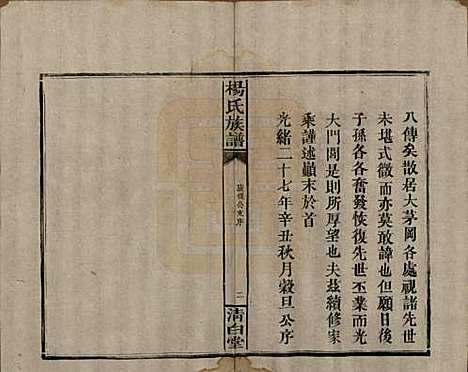 八傳矣散居大茅岡各處視諸先世
未堪式微而亦莫敢諱也但願日後
子孫各各奮發恢復先世丕業而光
大門閭是則所厚望也夫茲續修家
乘謹述巔末於首
光緒二十七年辛丑秋月穀旦公序
楊氏族譜
公支序
二
清白堂